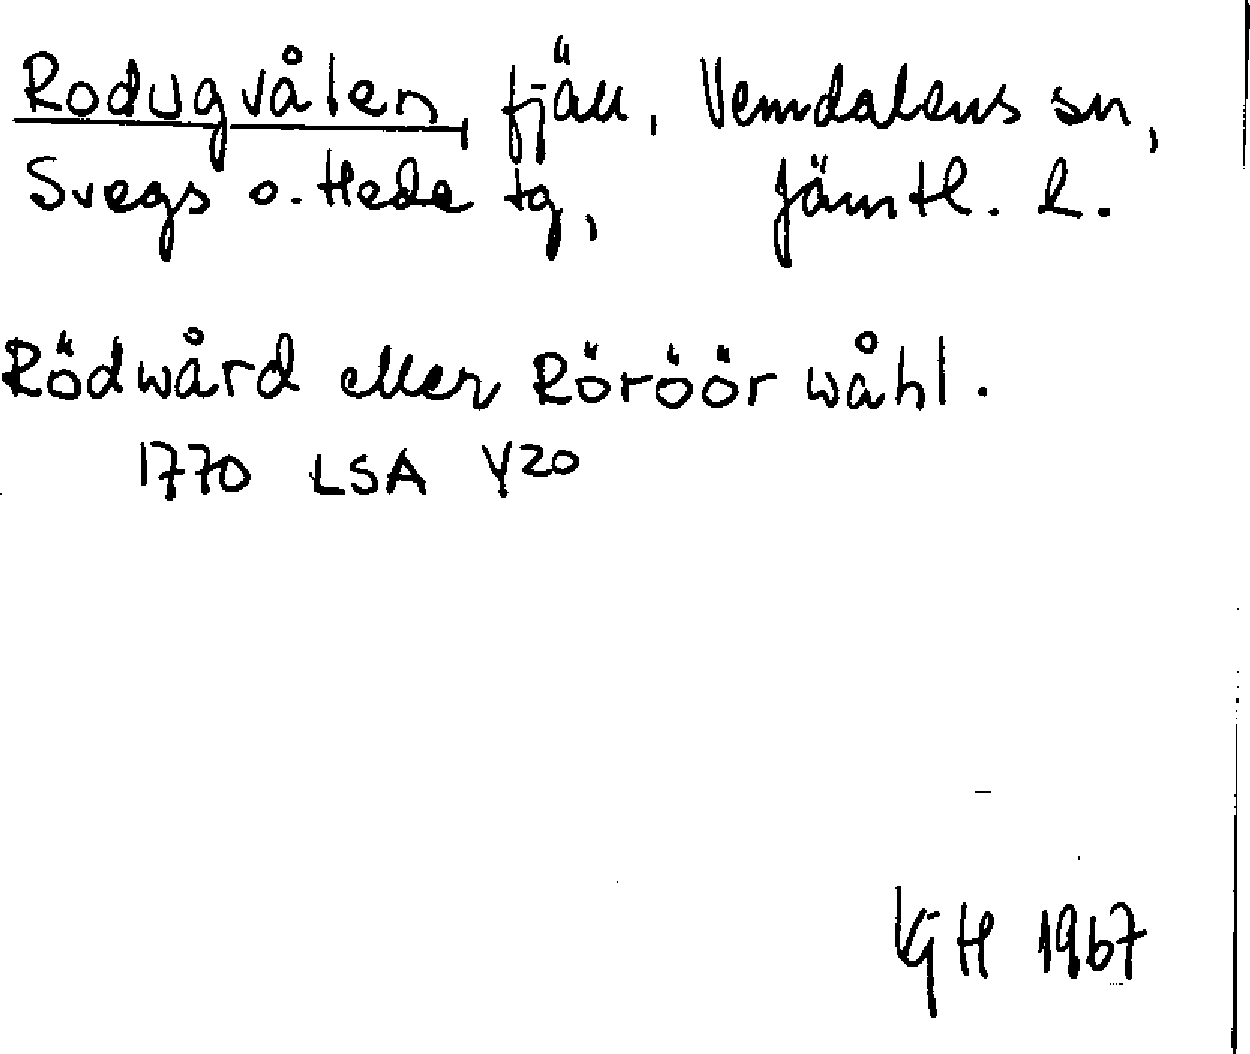 Rodugvålen, fjäll, Vemdalens sn,
Svegs o. Hede tg, Jämtl. l.
Rödwård eller Röröör wåhl.
1770 LSA Y20
GH 1967